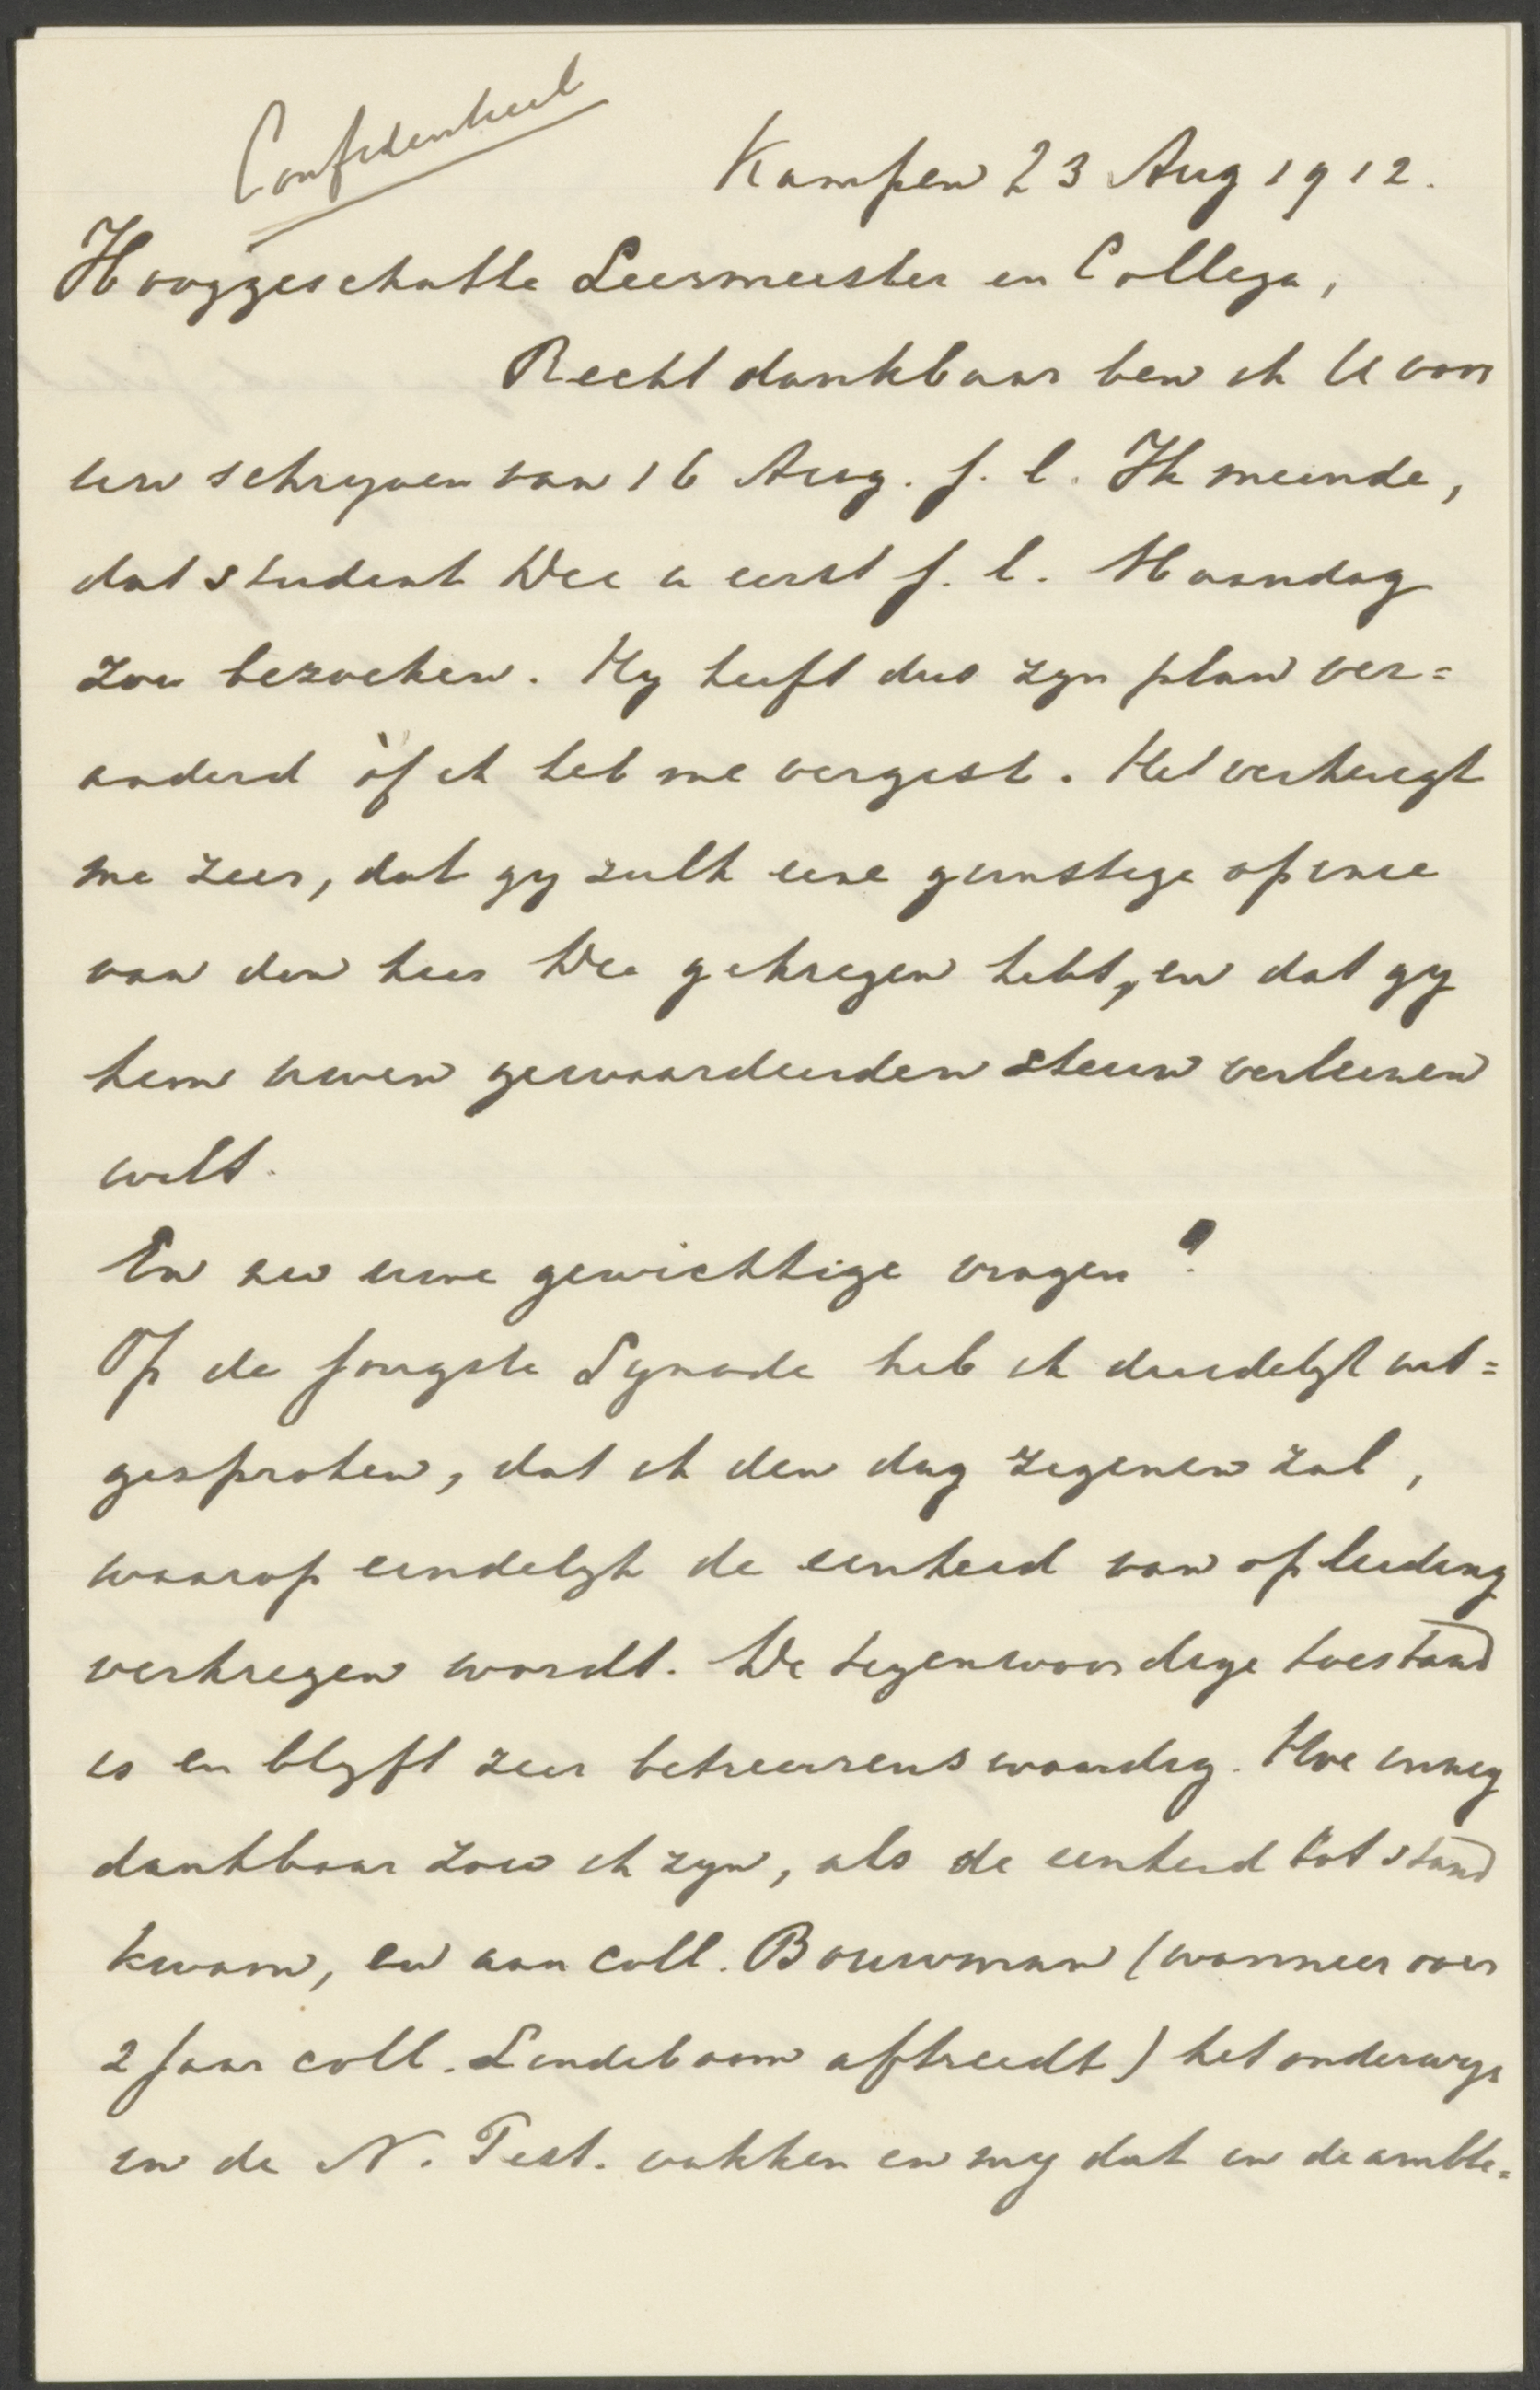 Confidentieel
Kampen 23 Aug 1912.
Hooggeschatte Leermeester en Collega,
Recht dankbaar ben ik U voor
uw schrijven van 16 Aug. j. l. Ik meende,
dat student Dee u eerst j. l. Maandag
zou bezoeken. Hij heeft dus zijn plan ver=
anderd òf ik heb me vergist. Het verheugt
me zeer, dat gij zulk eene gunstige opinie
van den heer Dee gekregen hebt, en dat gij
hem uwen gewaardeerden steun verleenen
wilt.
En nu uwe gewichtige vragen?
Op de jongste Synode heb ik duidelijk uit=
gesproken, dat ik den dag zegenen zal,
waarop eindelijk de eenheid van opleiding
verkregen wordt. De tegenwoordige toestand
is en blijft zeer betreurenswaardig. Hoe innig
dankbaar zou ik zijn, als de eenheid tot stand
kwam, en aan coll. Bouwman (wanneer over
2 jaar coll. Lindeboom aftreedt) het onderwijs
in de N. Test. vakken en mij dat in de ambte=